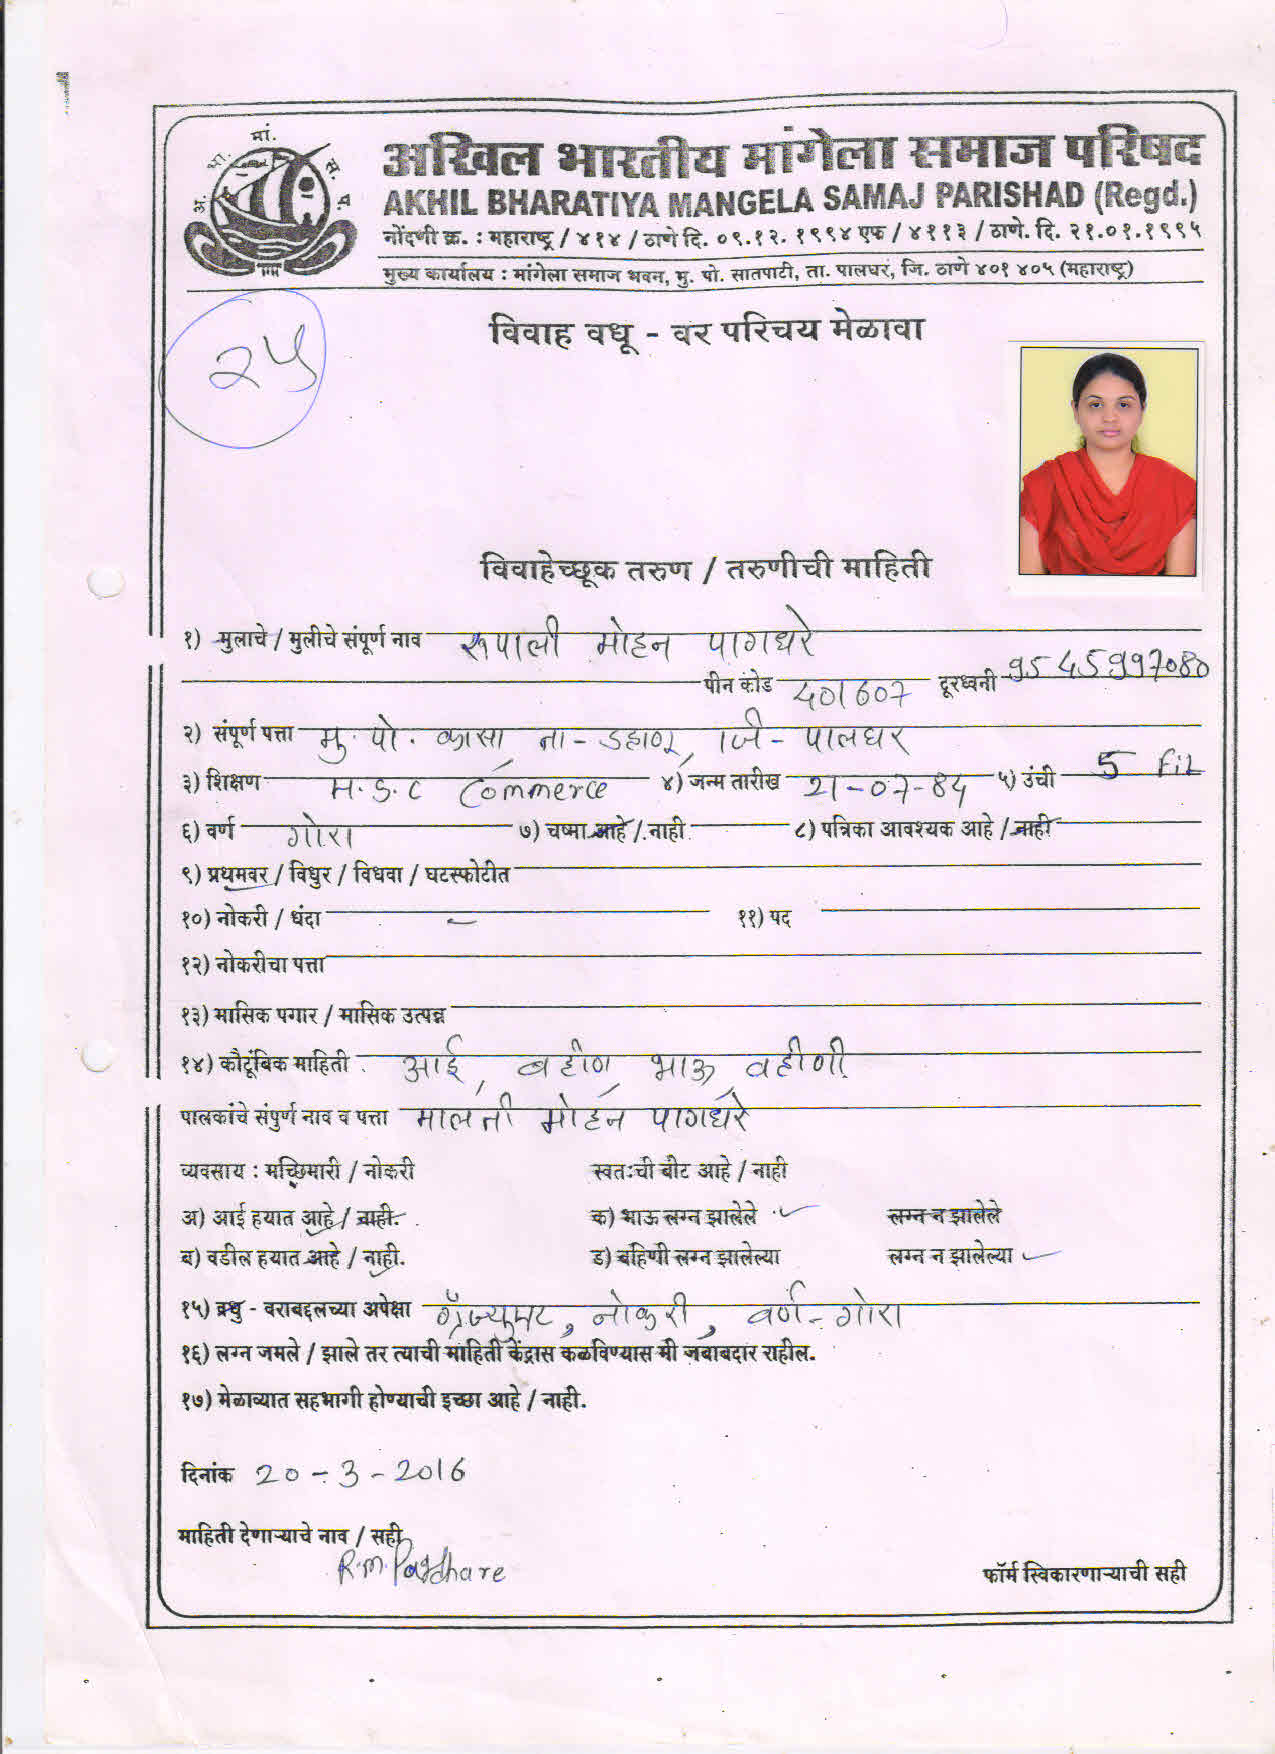 अ. भा. मां. स. प.
अखिल भारतीय मांगेला समाज परिषद
AKHIL BHARATIYA MANGELA SAMAJ PARISHAD (Regd.)
नोंदणी क्र. : महाराष्ट्र / ४१४ / ठाणे दि. ०९.१२. १९९४ एफ / ४११३ / ठाणे. दि. २१.०१.१९९५
मुख्य कार्यालय : मांगेला समाज भवन, मु. पो. सातपाटी, ता. पालघर, जि. ठाणे ४०१ ४०५ (महाराष्ट्र)
२५
विवाह वधू - वर परिचय मेळावा
विवाहेच्छूक तरुण / तरुणीची माहिती
१) मुलाचे / मुलीचे संपूर्ण नाव रुपाली मोहन पागधरे
पीन कोड 401607 दूरध्वनी 9545997080
२) संपूर्ण पत्ता मु. पो. कासा ता - डहाणू, जि - पालघर
३) शिक्षण M.S.C Commerce ४) जन्म तारीख 21-07-84 ५) उंची 5 fit
६) वर्ण गोरा ७) चष्मा आहे / नाही ८) पत्रिका आवश्यक आहे / नाही
९) प्रथमवर / विधुर / विधवा / घटस्फोटीत
१०) नोकरी / धंदा – ११) पद
१२) नोकरीचा पत्ता
१३) मासिक पगार / मासिक उत्पन्न
१४) कौटूंबिक माहिती आई, बहीण, भाऊ, वहीणी
पालकांचे संपुर्ण नाव व पत्ता मालती मोहन पागधरे
व्यवसाय : मच्छिमारी / नोकरी स्वतःची बोट आहे / नाही
अ) आई हयात आहे / नाही. क) भाऊ लग्न झालेले लग्न न झालेले
ब) वडील हयात आहे / नाही. ड) बहिणी लग्न झालेल्या लग्न न झालेल्या
१५) वधु - वराबद्दलच्या अपेक्षा ग्रॅज्यूएट, नोकरी, वर्ण - गोरा
१६) लग्न जमले / झाले तर त्याची माहिती केंद्रास कळविण्यास मी जबाबदार राहील.
१७) मेळाव्यात सहभागी होण्याची इच्छा आहे / नाही.
दिनांक 20-3-2016
माहिती देणाऱ्याचे नाव / सही
R.M.Pagdhare
फॉर्म स्विकारणाऱ्याची सही